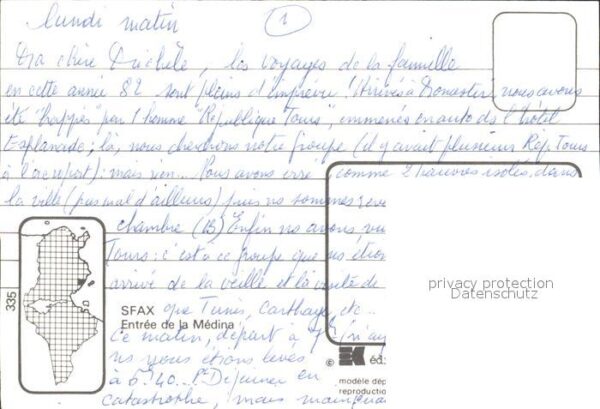 lundi matin
1
Ma chère Michèle, les voyages de la famille
en cette année 82 sont pleins d'imprévu ! Arrivés à Monastir, nous avons
été "happés" par 1 homme "République Tours", emmenés en auto ds l'hôtel
Esplanade ; là, nous cherchons notre groupe (il y avait plusieurs Rép. Tours
à l'aéroport) : mais rien... Nous avons erré comme 2 pauvres isolés, dans
la ville (pas mal d'ailleurs) puis ns sommes
chambre Enfin ns avons vu
Tours : c'est à ce groupe que ns étion
arrivé de la veille et la visite de
que Tunis, Carthage, etc..
Ce matin, départ à 7h
ns nous étions levés
à 6h40.. Pt Déjeuner en
catastrophe, mais
privacy protection
Datenschutz
335
SFAX
Entrée de la Médina
© éd.
modèle dép
reproductio